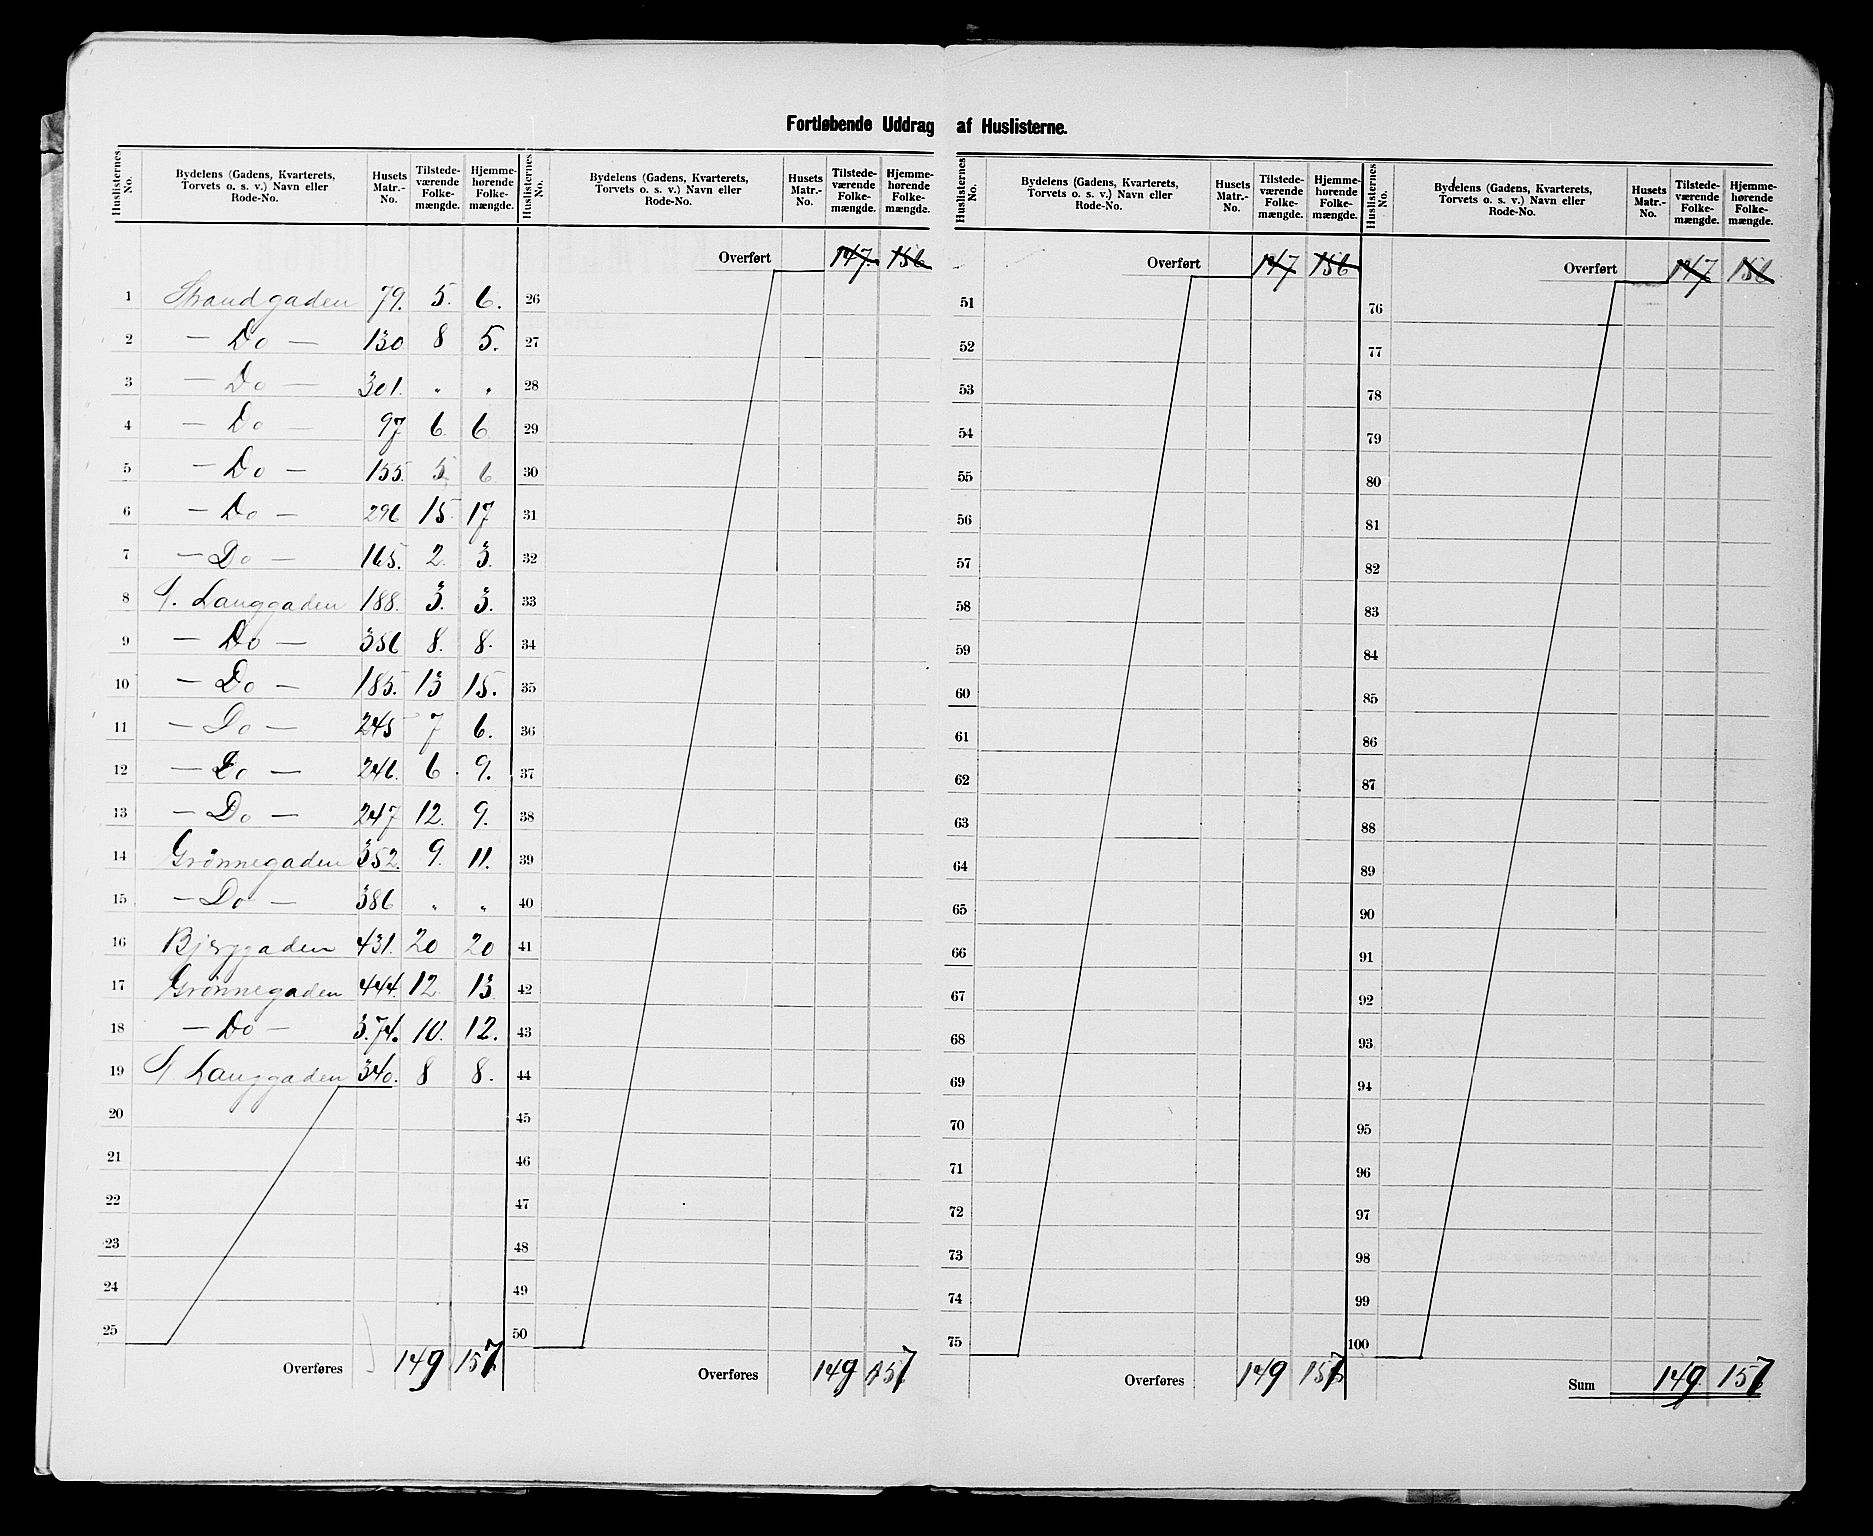 Fortløbende Uddrag af Huslisterne.
Huslisternes No. | Bydelens (Gadens, Kvarterets, Torvets o. s. v.) Navn eller Rode-No. | Husets Matr.-No. | Tilstede-værende Folke-mængde. | Hjemme-hørende Folke-mængde.
1 Strandgaden 79. 5. 6.
2 — Do — 130 8 5.
3 — Do — 301. „ „
4 — Do — 97 6 6
5 — Do — 155. 5 6
6 — Do — 296 15 17
7 — Do — 165. 2. 3.
8 S. Langgaden 188. 3. 3.
9 — Do — 356 8. 8.
10 — Do — 185. 13 15.
11 — Do — 245 7 6.
12 — Do — 246. 6. 9.
13 — Do — 247 12. 9.
14 Grönnegaden 352. 9. 11.
15 — Do — 386 „ „
16 Bjerggaden 431. 20 20
17 Grönnegaden 444. 12. 13
18 — Do — 374. 10. 12.
19 S. Langgaden 340. 8 8.
20
21
22
23
24
25
Overføres 149 157
Huslisternes No. | Bydelens (Gadens, Kvarterets, Torvets o. s. v.) Navn eller Rode-No. | Husets Matr.-No. | Tilstede-værende Folke-mængde. | Hjemme-hørende Folke-mængde.
Overført 147. 156
26
27
28
29
30
31
32
33
34
35
36
37
38
39
40
41
42
43
44
45
46
47
48
49
50
Overføres 149 157
Huslisternes No. | Bydelens (Gadens, Kvarterets, Torvets o. s. v.) Navn eller Rode-No. | Husets Matr.-No. | Tilstede-værende Folke-mængde. | Hjemme-hørende Folke-mængde.
Overført 147 156
51
52
53
54
55
56
57
58
59
60
61
62
63
64
65
66
67
68
69
70
71
72
73
74
75
Overføres 149 157
Huslisternes No. | Bydelens (Gadens, Kvarterets, Torvets o. s. v.) Navn eller Rode-No. | Husets Matr.-No. | Tilstede-værende Folke-mængde. | Hjemme-hørende Folke-mængde.
Overført 147 156
76
77
78
79
80
81
82
83
84
85
86
87
88
89
90
91
92
93
94
95
96
97
98
99
100
Sum 149. 157